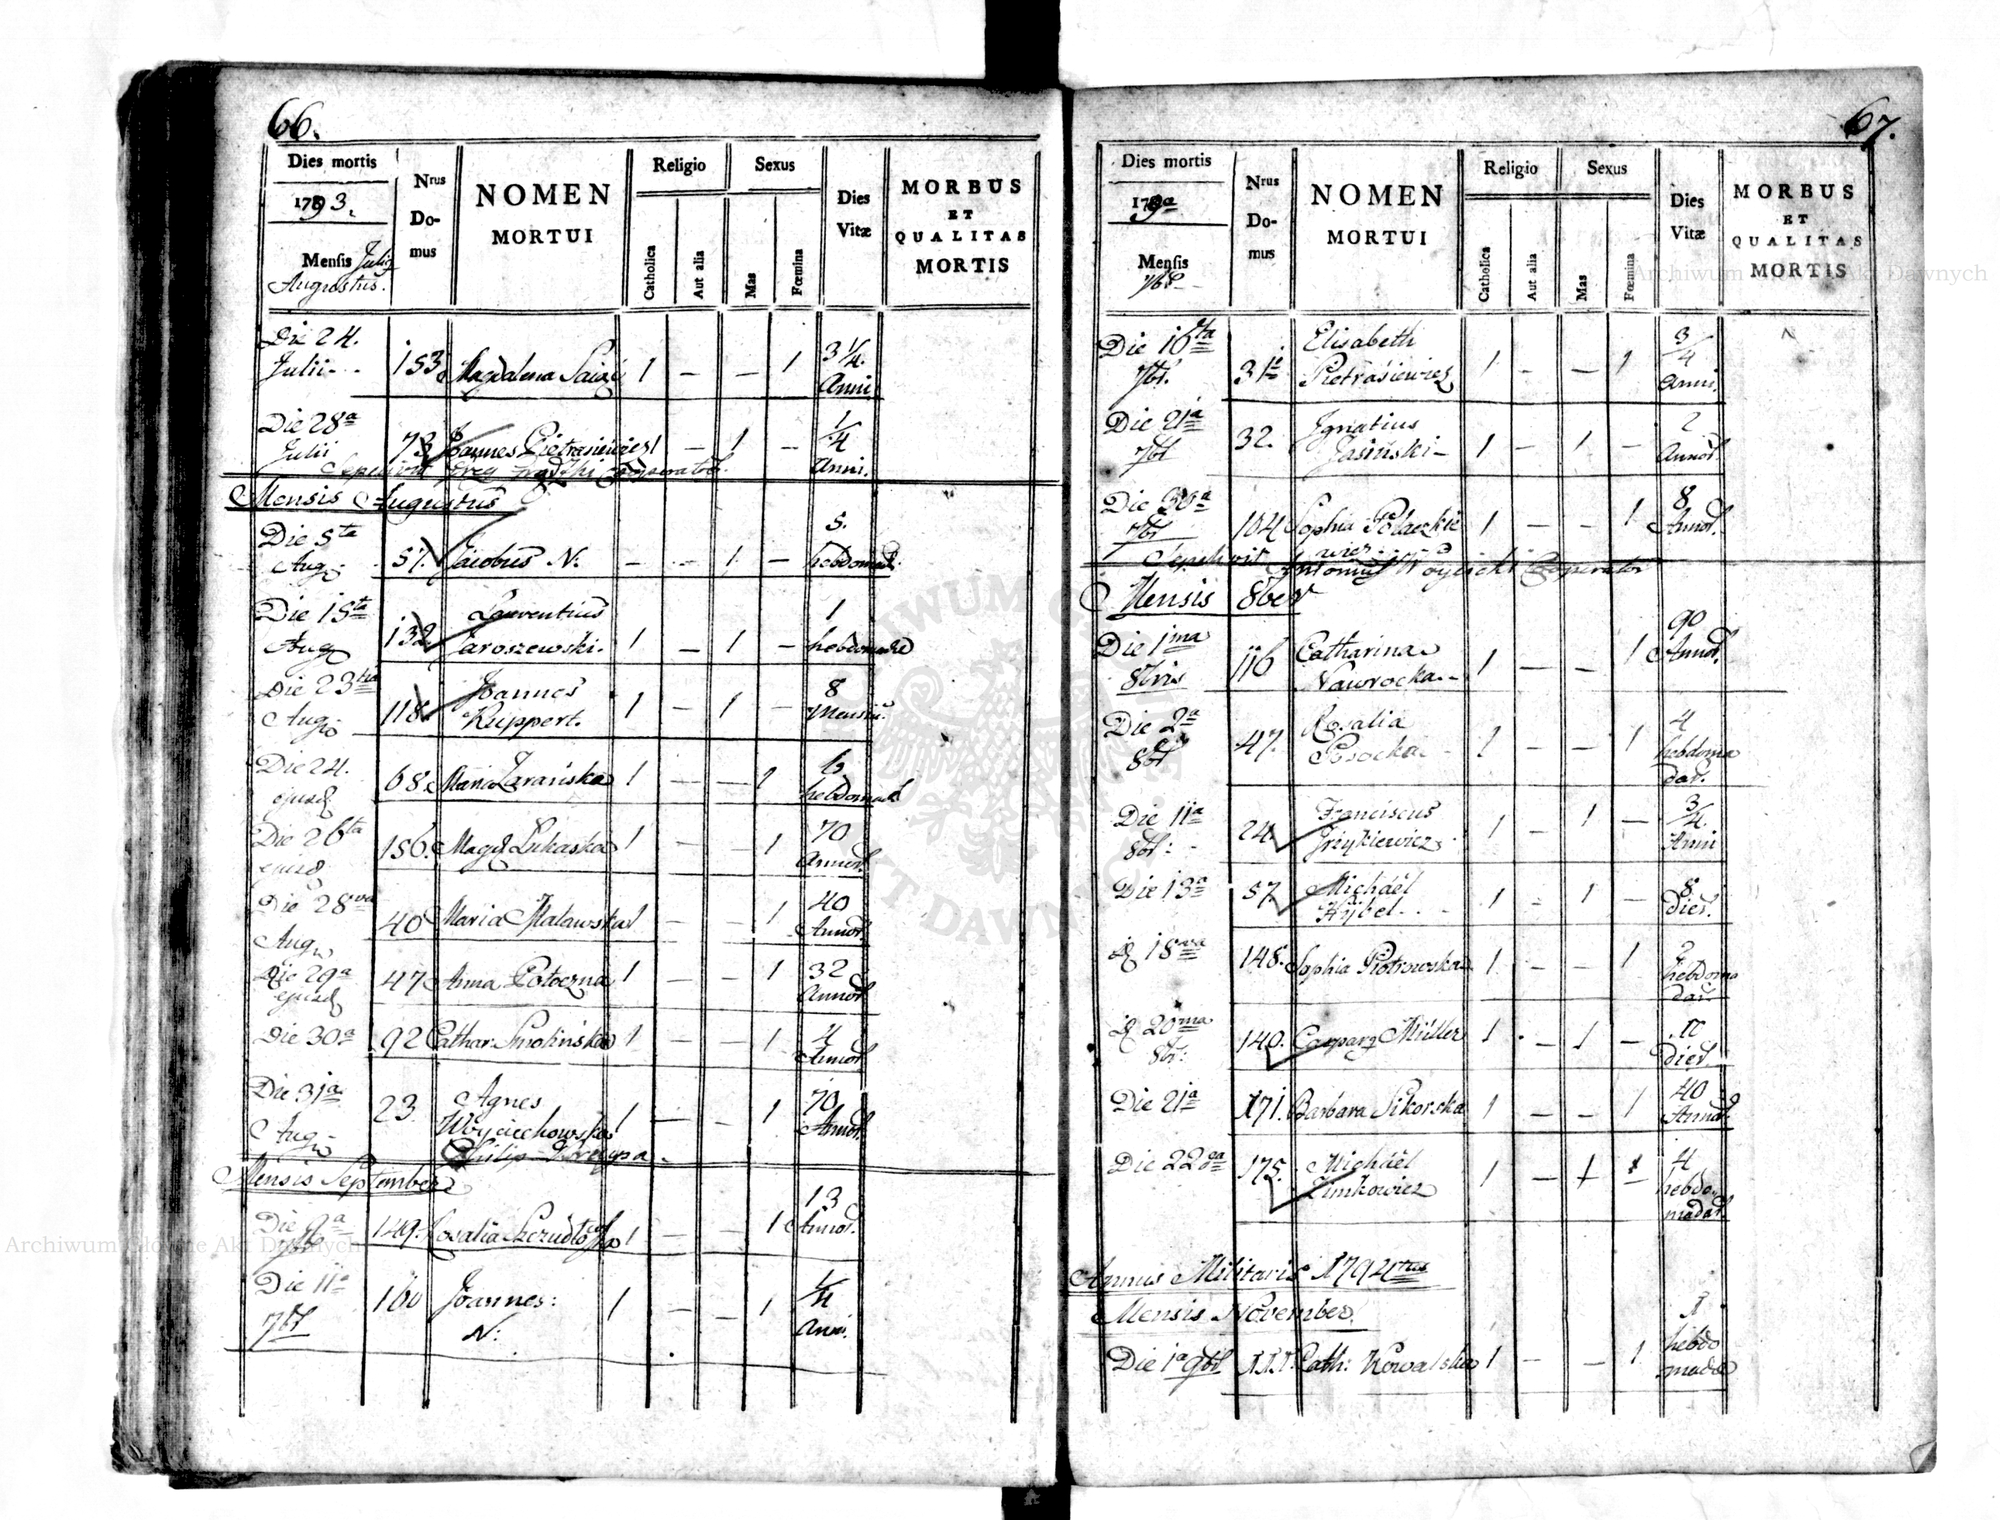 66.
Dies mortis
Nrus Domus
NOMEN MORTUI
Religio
Sexus
Dies Vitæ
MORBUS ET QUALITAS MORTIS
1793.
Mensis Julius
Augustus.
Catholica
Aut alia
Mas
Fœmina
Die 24. Julii 153 Magdalena 1 — — 1 3 1/4. Anni
Die 28a Julii 73 Joannes Pietrasiewicz 1 — 1 — 1/4 Anni.
Sepelivit Cooperator
Mensis Augustus
Die 5ta Aug. 57. Jacobus N. — — 1 — 5. hebdomad.
Die 15ta Aug 132. Laurentius Jaroszewski. 1 — 1 — 1 hebdomadæ
Die 23tia Aug 118. Joannes Ruppert. 1 — 1 — 8 Mensiu.
Die 24. ejusd 68. Maria Zarańska 1 — — 1 6 hebdomad
Die 26ta ejusd 156. Magd Lukaska 1 — — 1 70 Annor.
Die 28va Aug 40 Maria Malawska 1 — — 1 40 Annor.
Die 29a ejusd 47 Anna Potoczna 1 — — 1 32 Annor
Die 30a 92 Cathar: Smolińska 1 — — 1 4 Annor
Die 31a Aug 23 Agnes Woyciechowska 1 — — 1 70 Annor.
Philip
Mensis September
Die 9a 7br 149. Rosalia 1 — — 1 13 Annor.
Die 11a 7br 160 Joannes: N: 1 — — 1 1/4 Anni.
67.
Dies mortis
Nrus Domus
NOMEN MORTUI
Religio
Sexus
Dies Vitæ
MORBUS ET QUALITAS MORTIS
Mensis
7br
Catholica
Aut alia
Mas
Fœmina
Die 16ta 7br. 31. Elisabeth Pietrasiewicz 1 — — 1 3/4 Anni.
Die 21a 7br 32. Ignatius Jasiński — 1 — 1 — 2 Annor
Die 30a 7br 104 Sophia Polaczkiewicz 1 — — 1 8 Annor.
Sepelivit Antonius Woycicki Cooperator
Mensis 8ber
Die 1ma 8bris 116 Catharina Nawrocka. 1 — — 1 90 Annor.
Die 2a 8br 47. Rosalia Posocka 1 — — 1 4 hebdomadar.
Die 11a 8br: 24. Franciscus Jrzykiewicz. 1 — 1 — 3/4. Anni
Die 13a 57. Michaël Hybel. 1 — 1 — 8 Dier.
18va 148. Sophia Piotrowska 1 — — 1 2 hebdomadar.
20ma 8br: 140. Caspar Müller 1 — 1 — Dier.
Die 21a 171. Barbara Sikorska 1 — — 1 40 Annor.
Die 22da 175. Michaël Zinkowicz 1 — 1 — 4 hebdomadar.
Annus Militaris 1794tus
Mensis November
Die 1a 9br Cath: Kowalska 1 — — 1 1 hebdomada
Archiwum Główne Akt Dawnych
Archiwum Główne Akt Dawnych
ARCHIWUM GŁÓWNE AKT DAWNYCH